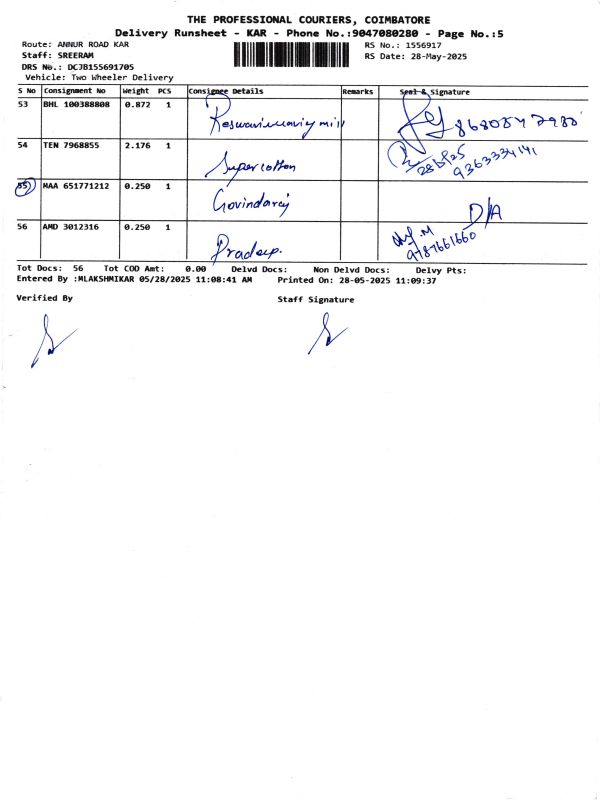 THE PROFESSIONAL COURIERS, COIMBATORE
Delivery Runsheet - KAR - Phone No.:9047080280 - Page No.:5
Route: ANNUR ROAD KAR
RS No.: 1556917
Staff: SREERAM
RS Date: 28-May-2025
DRS No.: DCJB155691705
Vehicle: Two Wheeler Delivery
S No Consignment No Weight PCS Consignee Details Remarks Seal & Signature
53 BHL 100388808 0.872 1 mill
54 TEN 7968855 2.176 1 Super cotton 28/5/25 9363334141
55 MAA 651771212 0.250 1 Govindaraj D/A
56 AMD 3012316 0.250 1 Pradeep. 9787661660
Tot Docs: 56 Tot COD Amt: 0.00 Delvd Docs: Non Delvd Docs: Delvy Pts:
Entered By :MLAKSHMIKAR 05/28/2025 11:08:41 AM Printed On: 28-05-2025 11:09:37
Verified By Staff Signature